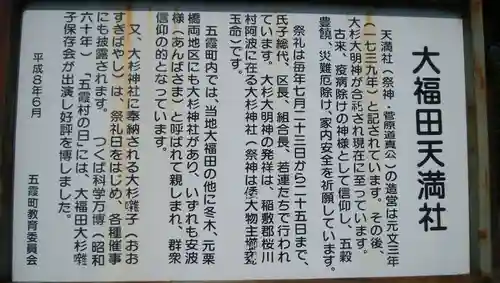 大福田天満社
天満社（祭神・菅原道真公）の造営は元文三年
（一七三九年）と記されています。その後、
大杉大明神が合祀され現在に至っています。
古来、疫病除けの神様として信仰し、五穀
豊饒、災難厄除け、家内安全を祈願しています。
祭礼は毎年七月二十三日から二十五日まで、
氏子総代、区長、組合長、若連たちで行われ
ています。大杉大明神の発祥は、稲敷郡桜川
村阿波に在る大杉神社（祭神は倭大物主櫛𤭖
玉命）です。
五霞町内では、当地大福田の他に冬木、元栗
橋両地区にも大杉神社があり、いずれも安波
様（あんばさま）と呼ばれて親しまれ、群衆
信仰の的となっています。
又、大杉神社に奉納される大杉囃子（おお
すぎばやし）は、祭礼日をはじめ、各種催事
にも披露されます。つくば科学万博（昭和
六十年）「五霞村の日」には、大福田大杉囃
子保存会が出演し好評を博しました。
平成８年６月
五霞町教育委員会